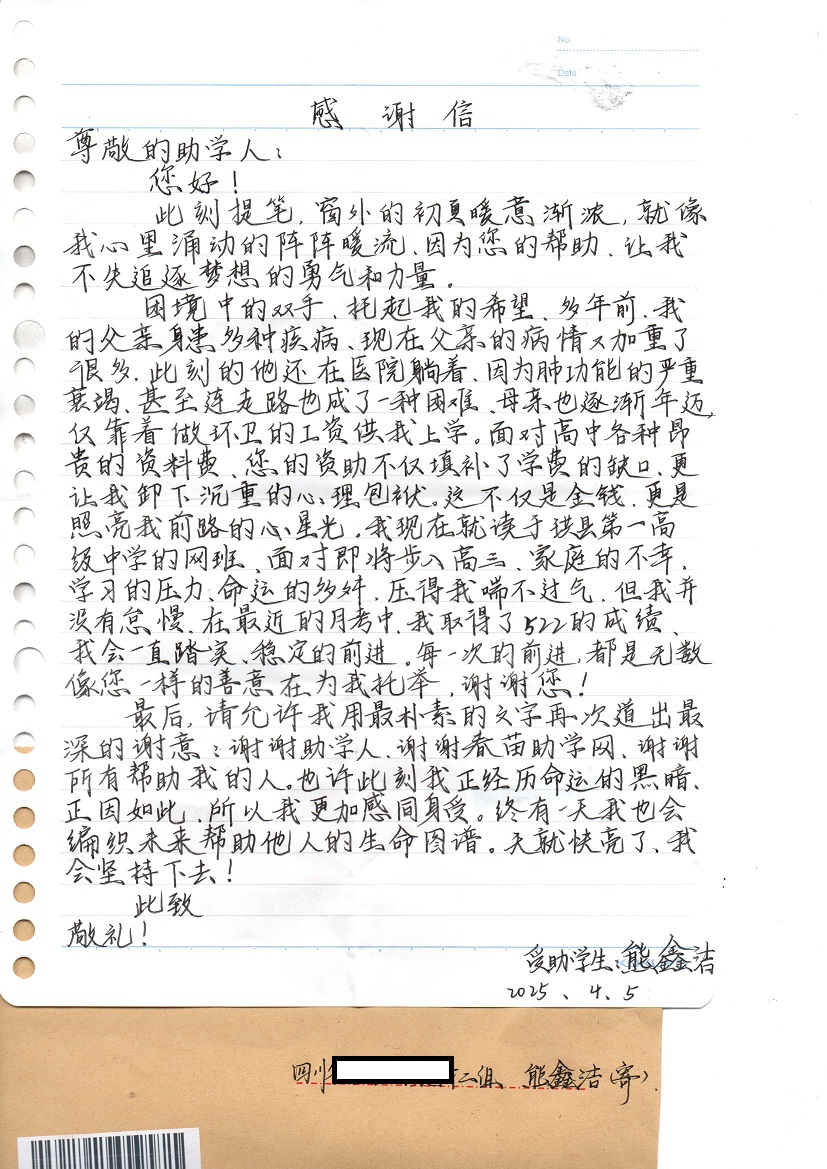 No.
Date
感 谢 信
尊敬的助学人：
您好！
此刻提笔，窗外的初夏暖意渐浓，就像
我心里涌动的阵阵暖流、因为您的帮助、让我
不失追逐梦想的勇气和力量。
困境中的双手、托起我的希望、多年前、我
的父亲身患多种疾病、现在父亲的病情又加重了
很多、此刻的他还在医院躺着、因为肺功能的严重
衰竭、甚至连走路也成了一种困难、母亲也逐渐年迈，
仅靠着做环卫的工资供我上学。面对高中各种昂
贵的资料费、您的资助不仅填补了学费的缺口、更
让我卸下沉重的心理包袱。这不仅是金钱、更是
照亮我前路的心星光，我现在就读于珙县第一高
级中学的网班、面对即将步入高三、家庭的不幸、
学习的压力、命运的多舛、压得我喘不过气、但我并
没有怠慢、在最近的月考中、我取得了522的成绩、
我会一直踏实、稳定的前进。每一次的前进，都是无数
像您一样的善意在为我托举，谢谢您！
最后，请允许我用最朴素的文字再次道出最
深的谢意：谢谢助学人、谢谢春苗助学网、谢谢
所有帮助我的人。也许此刻我正经历命运的黑暗、
正因如此、所以我更加感同身受。终有一天我也会
编织未来帮助他人的生命图谱。天就快亮了、我
会坚持下去！
此致
敬礼！
受助学生：熊鑫洁
2025、4、5
四川 二组 熊鑫洁（寄）